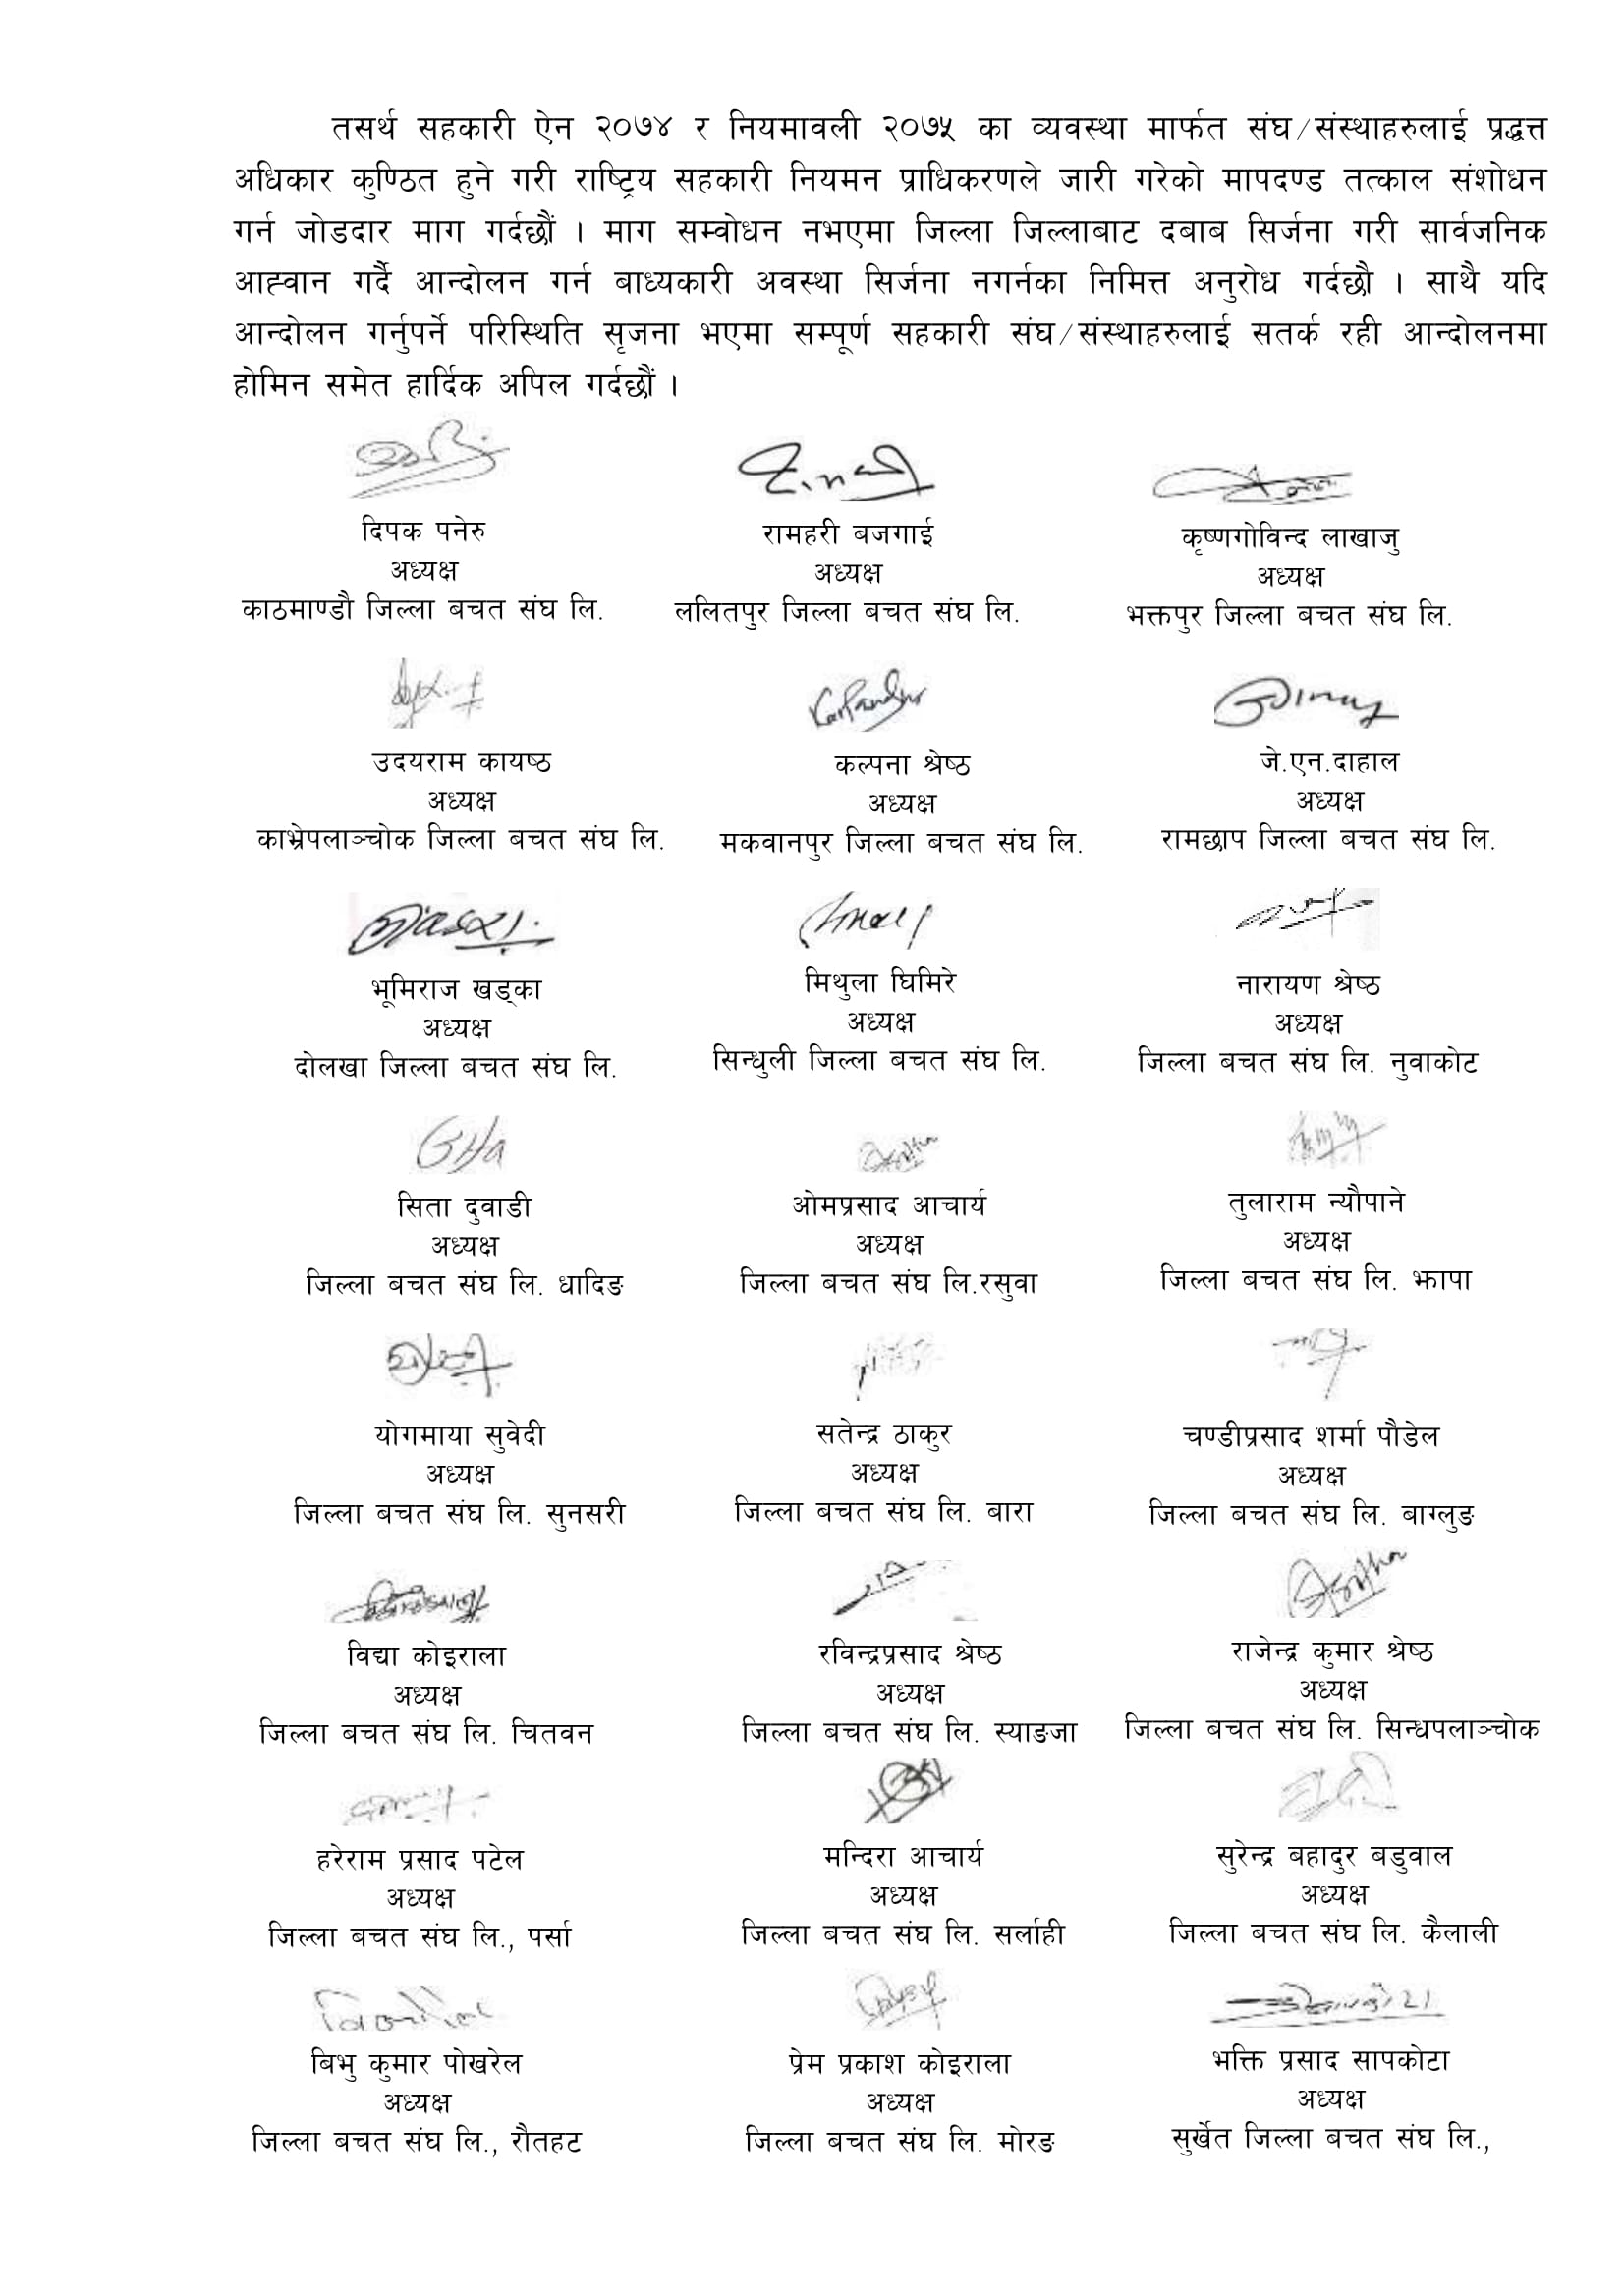 तसर्थ सहकारी ऐन २०७४ र नियमावली २०७५ का व्यवस्था मार्फत संघ/संस्थाहरुलाई प्रद्धत्त
अधिकार कुण्ठित हुने गरी राष्ट्रिय सहकारी नियमन प्राधिकरणले जारी गरेको मापदण्ड तत्काल संशोधन
गर्न जोडदार माग गर्दछौं । माग सम्वोधन नभएमा जिल्ला जिल्लाबाट दबाब सिर्जना गरी सार्वजनिक
आह्वान गर्दै आन्दोलन गर्न बाध्यकारी अवस्था सिर्जना नगर्नका निमित्त अनुरोध गर्दछौ । साथै यदि
आन्दोलन गर्नुपर्ने परिस्थिति सृजना भएमा सम्पूर्ण सहकारी संघ/संस्थाहरुलाई सतर्क रही आन्दोलनमा
होमिन समेत हार्दिक अपिल गर्दछौं ।
दिपक पनेरु रामहरी बजगाई कृष्णगोविन्द लाखाजु
अध्यक्ष अध्यक्ष अध्यक्ष
काठमाण्डौ जिल्ला बचत संघ लि. ललितपुर जिल्ला बचत संघ लि. भक्तपुर जिल्ला बचत संघ लि.
उदयराम कायष्ठ कल्पना श्रेष्ठ जे.एन.दाहाल
अध्यक्ष अध्यक्ष अध्यक्ष
काभ्रेपलाञ्चोक जिल्ला बचत संघ लि. मकवानपुर जिल्ला बचत संघ लि. रामछाप जिल्ला बचत संघ लि.
भूमिराज खड्का मिथुला घिमिरे नारायण श्रेष्ठ
अध्यक्ष अध्यक्ष अध्यक्ष
दोलखा जिल्ला बचत संघ लि. सिन्धुली जिल्ला बचत संघ लि. जिल्ला बचत संघ लि. नुवाकोट
सिता दुवाडी ओमप्रसाद आचार्य तुलाराम न्यौपाने
अध्यक्ष अध्यक्ष अध्यक्ष
जिल्ला बचत संघ लि. धादिङ जिल्ला बचत संघ लि.रसुवा जिल्ला बचत संघ लि. झापा
योगमाया सुवेदी सतेन्द्र ठाकुर चण्डीप्रसाद शर्मा पौडेल
अध्यक्ष अध्यक्ष अध्यक्ष
जिल्ला बचत संघ लि. सुनसरी जिल्ला बचत संघ लि. बारा जिल्ला बचत संघ लि. बाग्लुङ
विद्या कोइराला रविन्द्रप्रसाद श्रेष्ठ राजेन्द्र कुमार श्रेष्ठ
अध्यक्ष अध्यक्ष अध्यक्ष
जिल्ला बचत संघ लि. चितवन जिल्ला बचत संघ लि. स्याङजा जिल्ला बचत संघ लि. सिन्धपलाञ्चोक
हरेराम प्रसाद पटेल मन्दिरा आचार्य सुरेन्द्र बहादुर बडुवाल
अध्यक्ष अध्यक्ष अध्यक्ष
जिल्ला बचत संघ लि., पर्सा जिल्ला बचत संघ लि. सर्लाही जिल्ला बचत संघ लि. कैलाली
बिभु कुमार पोखरेल प्रेम प्रकाश कोइराला भक्ति प्रसाद सापकोटा
अध्यक्ष अध्यक्ष अध्यक्ष
जिल्ला बचत संघ लि., रौतहट जिल्ला बचत संघ लि. मोरङ सुर्खेत जिल्ला बचत संघ लि.,